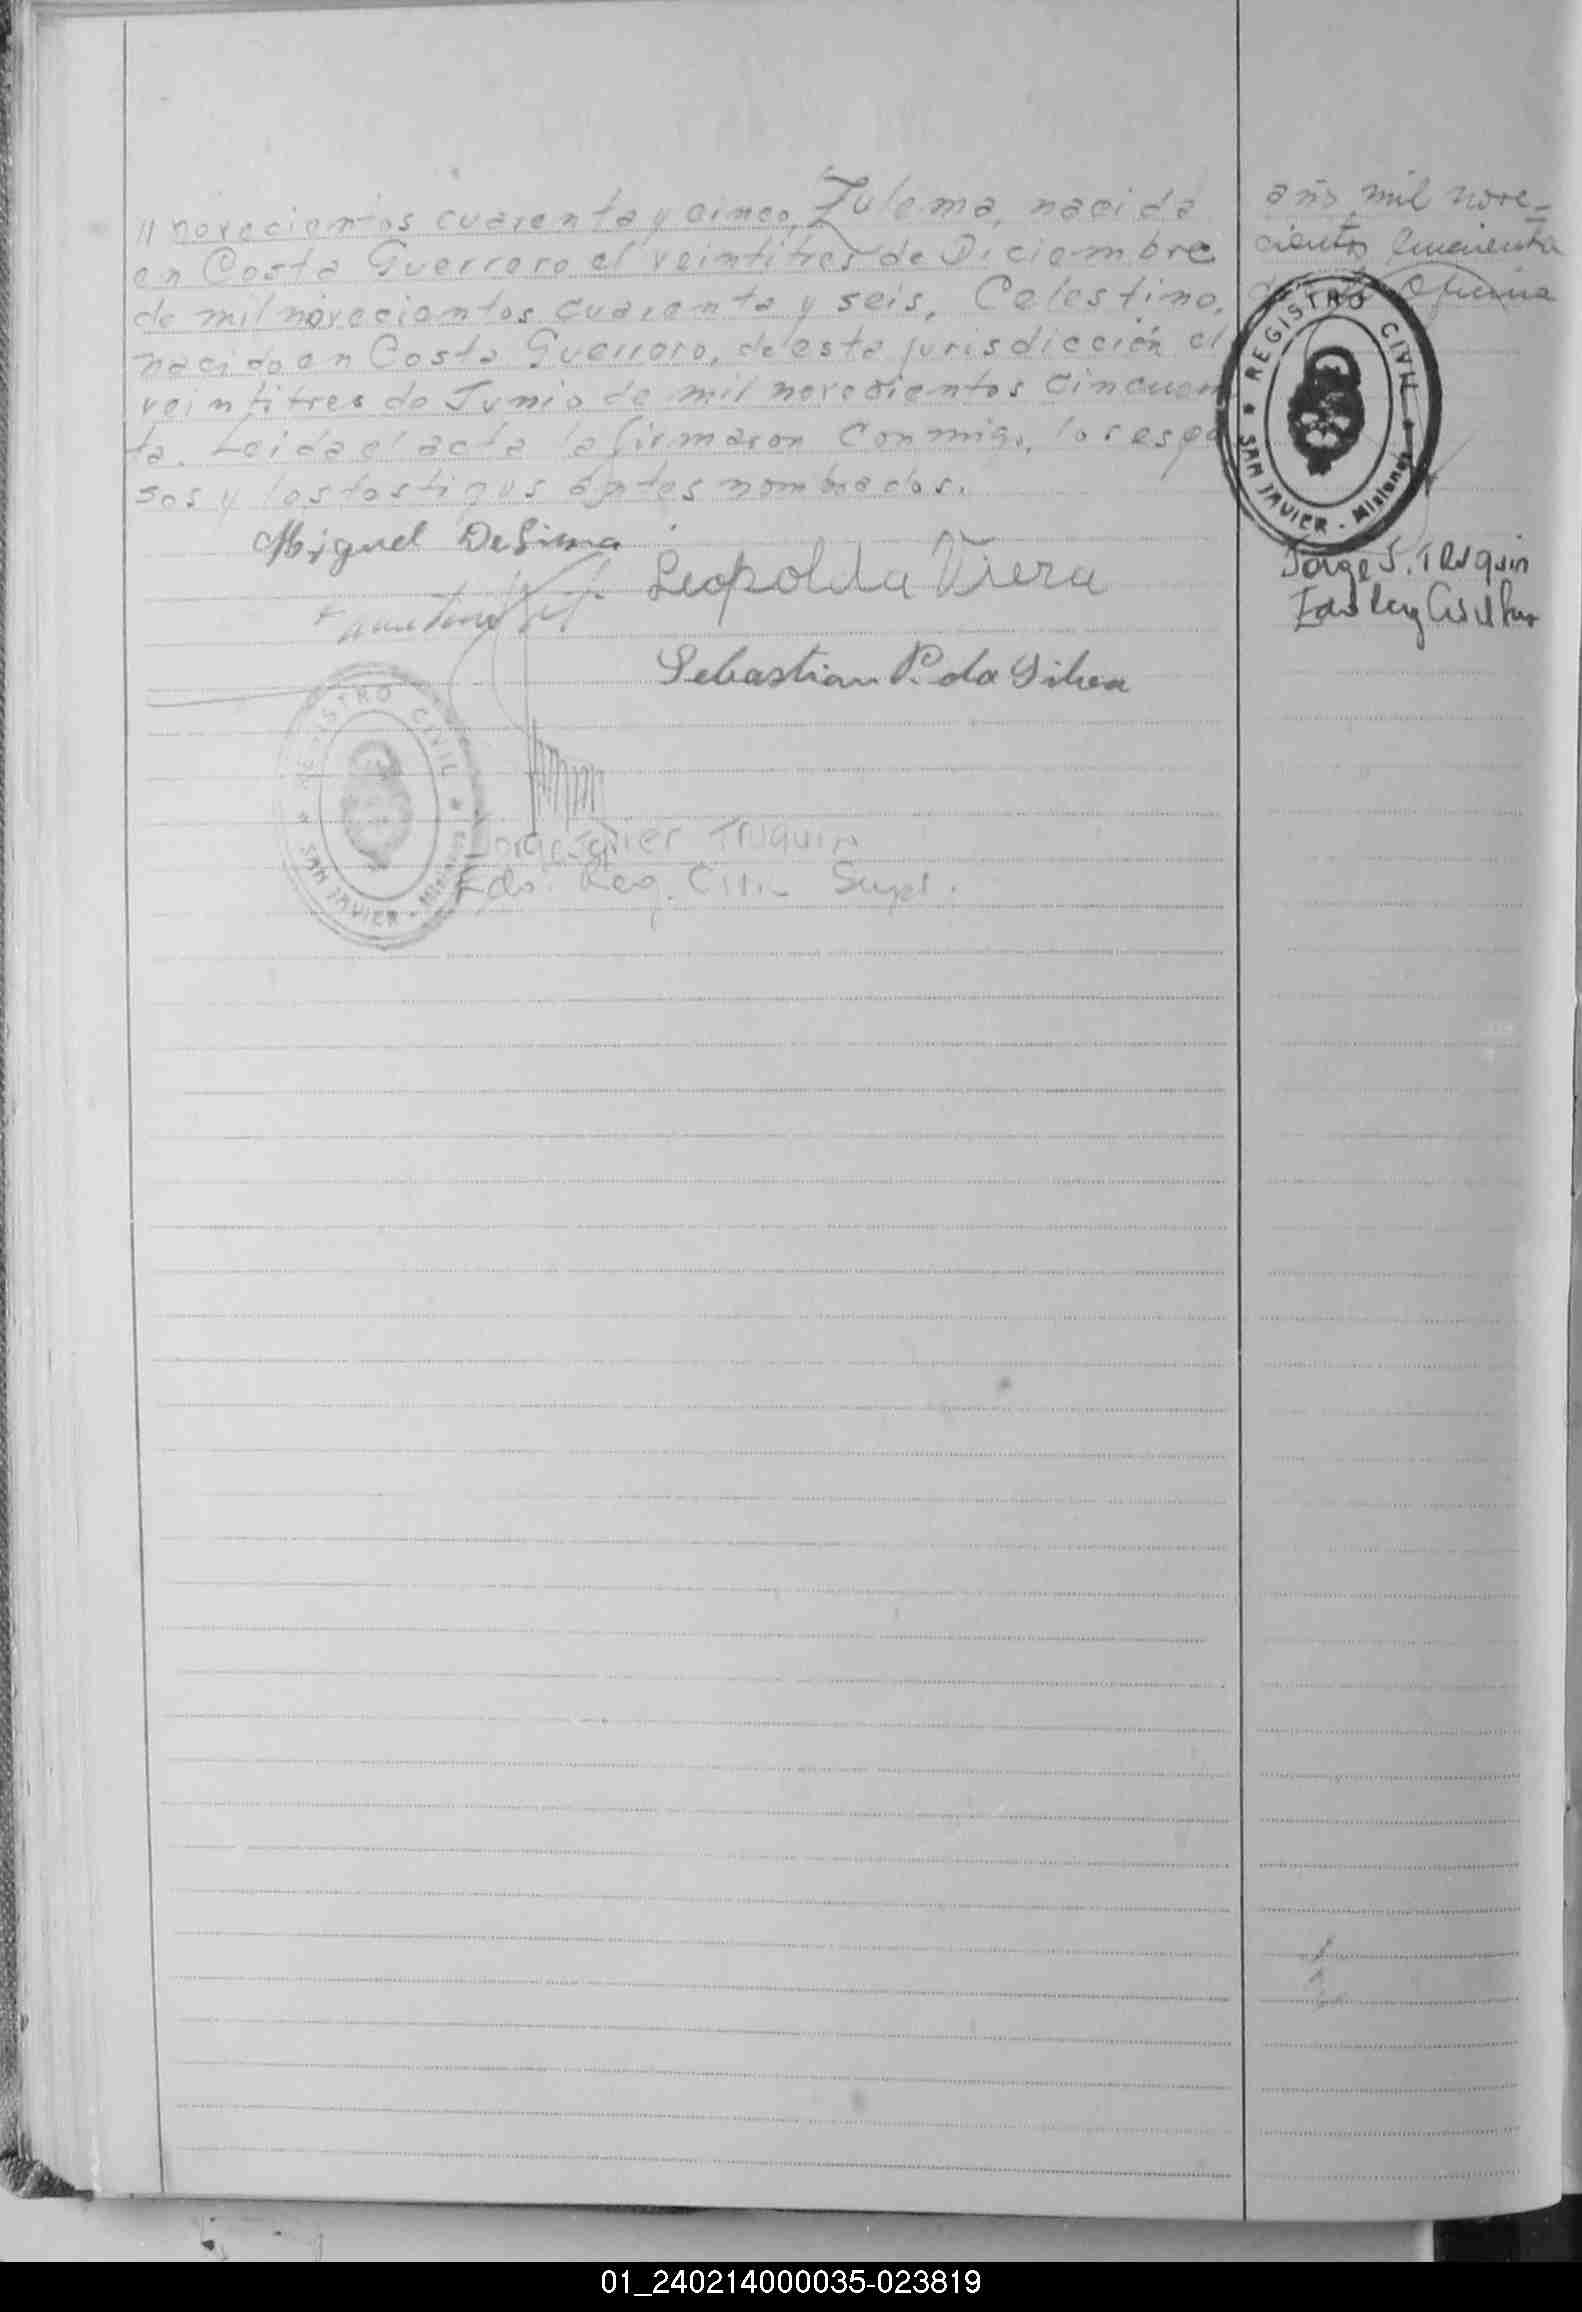 // novecientos cuarenta y cinco, Zulema, nacida
en Costa Guerrero el veintitres de Diciembre
de mil novecientos cuarenta y seis, Celestino,
nacido en Costa Guerrero, de esta jurisdicción el
veintitres de Junio de mil novecientos cincuen
ta. Leida el acta la firmaron conmigo, los espo
sos y los testigos antes nombrados.
Miguel DeLima
Leopolda Viera
Sebastian P. da Silva
REGISTRO CIVIL
SAN JAVIER - Misiones
Jorge Javier Truquin
Edo. Reg. Civil Supl.
año mil nove-
cientos cincuenta
Oficina
REGISTRO CIVIL
SAN JAVIER - Misiones
Jorge J. Truquin
01_240214000035-023819